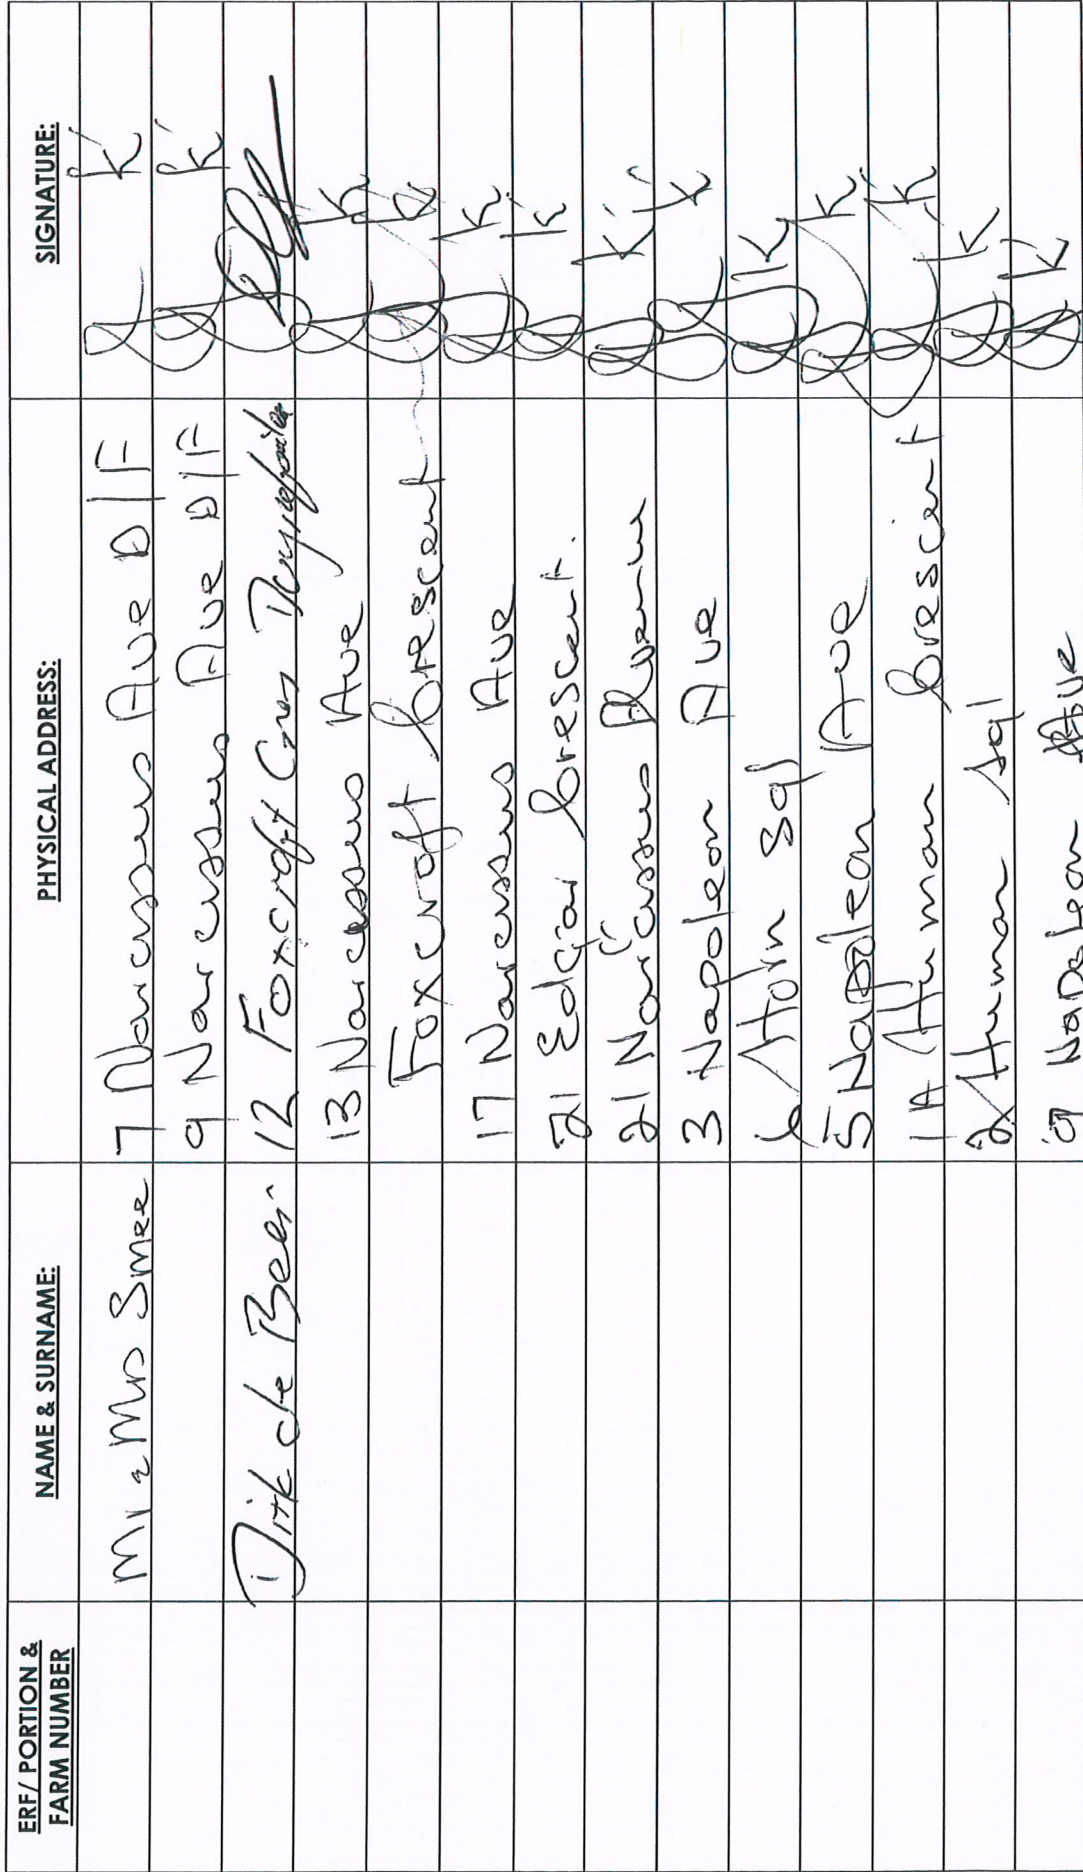 ERF/ PORTION & FARM NUMBER NAME & SURNAME: PHYSICAL ADDRESS: SIGNATURE:
Mr & Mrs Smee 7 Narcissus Ave D/F K
9 Narcissus Ave D/F K
Dirk de Beer 12 Foxcroft Cres
13 Narcessus Ave K
Foxcroft Crescent K
17 Narcissus Ave K
21 Edgar Crescent. K
21 Narcissus Avenue K
3 Napoleon Ave K
6 Horn Sql K
5 Napoleon Ave K
1A Human Crescent K
2 Human sql K
9 Napoleon Ave K